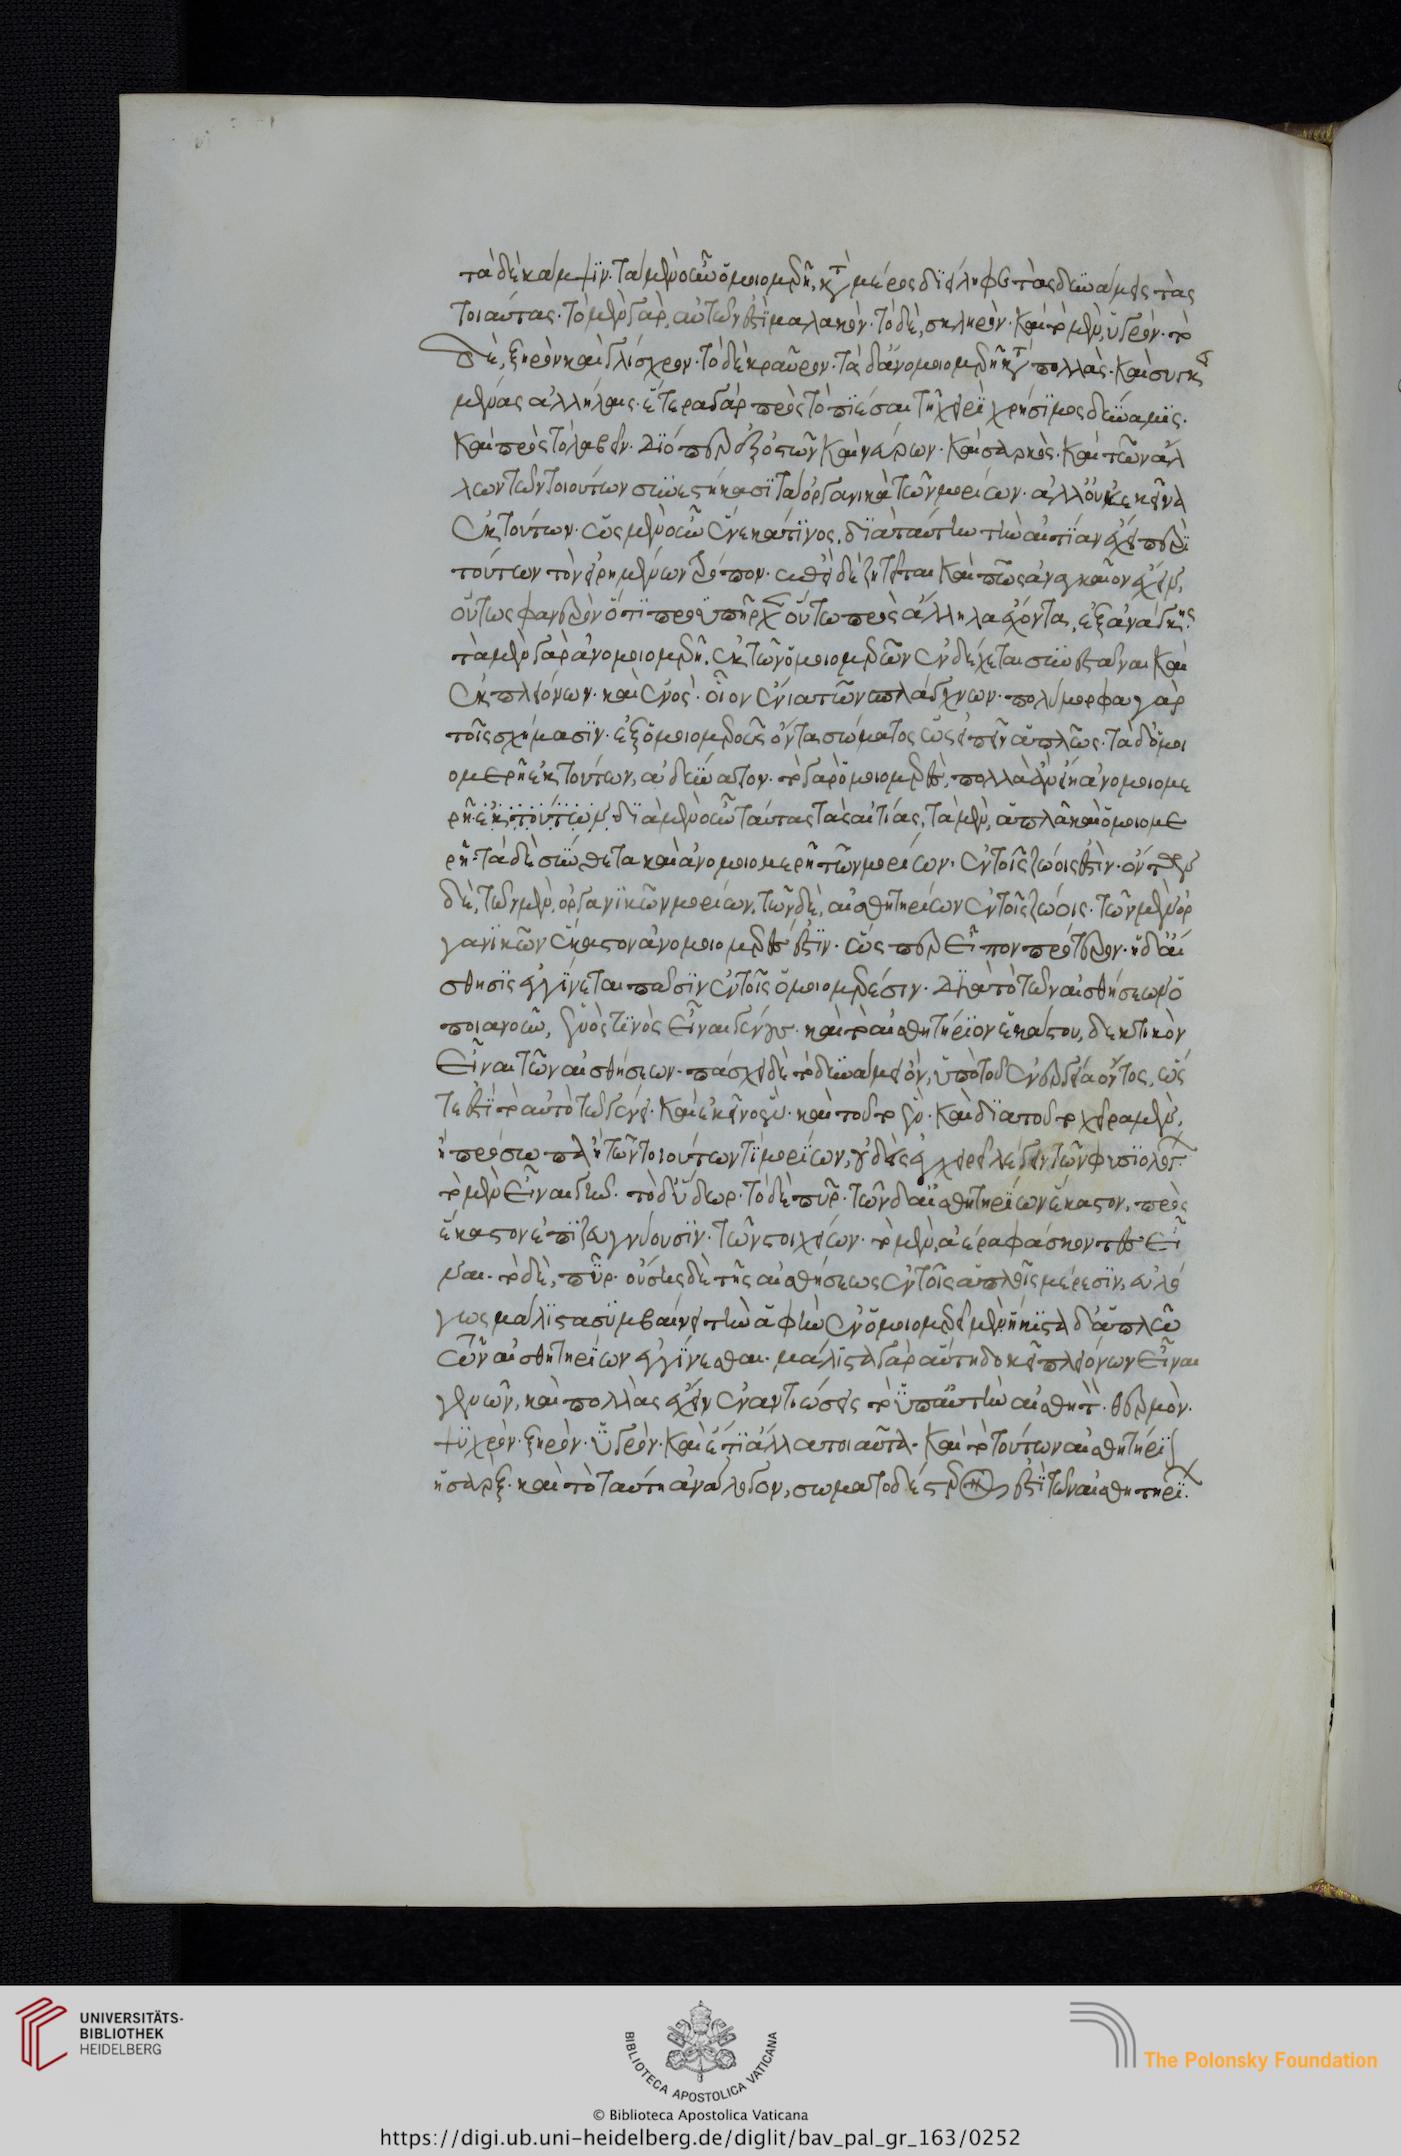 τὰ δὲ κάμψϊν· τὰ μὲν οὖν ὁμοιομερῆ, κατὰ μέρος διείληφε τὰς δυνάμεις τὰς
τοιαύτας· τὸ μὲν γὰρ, αὐτῶν ἐστὶ μαλακὸν· τὸ δὲ, σκληρὸν· καὶ τὸ μὲν, ὑγρόν· τὸ
δὲ, ξηρὸν καὶ γλίσχρον· τὸ δὲ κραῦρον· τὰ δ' ἀνομοιομερῆ κατὰ πολλὰς· καὶ συγκει
μένας ἀλλήλαις· ἑτέρα γὰρ πρὸς τὸ πϊέσαι τῆ χειρὶ χρήσϊμος δύναμϊς·
καὶ πρὸς τὸ λαβεῖν· διόπερ ἐξ ὀστῶν καὶ νεύρων· καὶ σαρκὸς· καὶ τῶν ἄλ
λων τῶν τοιούτων συνεστήκασϊ τὰ ὀργανικὰ τῶν μορίων· ἀλλ' οὐκ ἐκεῖνα
ἐκ τούτων· ὡς μὲν οὖν ἕνεκά τϊνος, διὰ ταύτην τὴν αἰτίαν ἔχει περὶ
τούτων τὸν εἰρημένων τρόπον· ἐπεὶ δὲ ζητεῖται καὶ πῶς ἀναγκαῖον ἔχειν,
οὕτως φανερὸν ὅτϊ προϋπῆρχεν οὕτω πρὸς ἄλληλα ἔχοντα, ἐξ ἀνάγκης·
τὰ μὲν γὰρ ἀνομοιομερῆ, ἐκ τῶν ὁμοιομερῶν ἐνδέχεται συνεστάναι καὶ
ἐκ πλειόνων· καὶ ἑνός· οἷον ἔνια τῶν σπλάγχνων· πολύμορφα γὰρ
τοῖς σχήμασϊν· ἐξ ὁμοιομεροῦς ὄντα σώματος ὡς εἰπεῖν ἁπλῶς· τὰ δ' ὁμοι
ομερῆ ἐκ τούτων, ἀδύνατον· τὸ γὰρ ὁμοιομερὲς, πολλὰ ἂν εἴη ἀνομοιομε
ρῆ· ἐκ τούτων· διὰ μὲν οὖν ταύτας τὰς αἰτίας, τὰ μὲν, ἁπλᾶ καὶ ὁμοιομε
ρῆ· τὰ δὲ σύνθετα καὶ ἀνομοιομερῆ τῶν μορίων· ἐν τοῖς ζώοις ἐστὶν· ὄντων
δὲ, τῶν μὲν, ὀργανϊκῶν μορίων, τῶν δὲ, αἰσθητηρίων ἐν τοῖς ζώοις· τῶν μὲν ὀρ
γανϊκῶν ἕκαστον ἀνομοιομερές ἐστϊν· ὥσπερ εἶπον πρότερον· ἡ δ' αἴ
σθησϊς ἐγγίνεται πᾶσϊν ἐν τοῖς ὁμοιομερέσιν· διὰ τὸ τῶν αἰσθήσεων ὁ
ποιανοῦν, ἑνὸς τϊνὸς εἶναι γένους· καὶ τὸ αἰσθητήρϊον ἑκάστου, δεκτικὸν
εἶναι τῶν αἰσθήσεων· πάσχει δὲ τὸ δυνάμει ὂν, ὑπὸ τοῦ ἐνεργεία ὄντος, ὥς
τε ἐστὶ τὸ αὐτὸ τῶ γένει· καὶ ἐκεῖνο ἓν· καὶ τοῦτο ἓν· καὶ διὰ τοῦτο χεῖρα μὲν,
ἢ πρόσωπον ἢ τῶν τοιούτων τϊ μορϊων, οὐδεὶς ἐγχειρεῖ λέγειν τῶν φυσϊολόγ
τὸ μὲν εἶναι γῆν· τὸ δ' ὕδωρ· τὸ δὲ πῦρ· τῶν δ' αἰσθητηρϊων ἕκαστον, πρὸς
ἕκαστον ἐπϊζευγνύουσϊν· τῶν στοιχείων· τὸ μὲν, ἀέρα φάσκοντες εἶ
ναι· τὸ δὲ, πῦρ· οὔσης δὲ τῆς αἰσθήσεως ἐν τοῖς ἁπλοῖς μέρεσϊν, εὐλό
γως μάλϊστα συμβαίνει τὴν ἁφὴν ἐν ὁμοιομερεῖ μὲν ἥκιστα δ' ἁπλῶ
τῶν αἰσθητηρϊων ἐγγίνεσθαι· μάλϊστα γὰρ αὕτη δοκεῖ πλειόνων εἶναι
γενῶν, καὶ πολλὰς ἔχειν ἐναντιώσεις τὸ ὑπ' αὐτὴν αἰσθητ· θερμὸν·
ψυχρὸν· ξηρὸν· ὑγρὸν· καὶ εἴ τϊ ἄλλα τοιαῦτα· καὶ τὸ τούτων αἰσθητήρϊ
ἡ σὰρξ· καὶ τὸ ταύτη ἀνάλογον, σωματοδέστερον ἐστὶ τῶν αἰσθητηρϊ
UNIVERSITÄTS-
BIBLIOTHEK
HEIDELBERG
BIBLIOTECA APOSTOLICA VATICANA
The Polonsky Foundation
© Biblioteca Apostolica Vaticana
https://digi.ub.uni-heidelberg.de/diglit/bav_pal_gr_163/0252